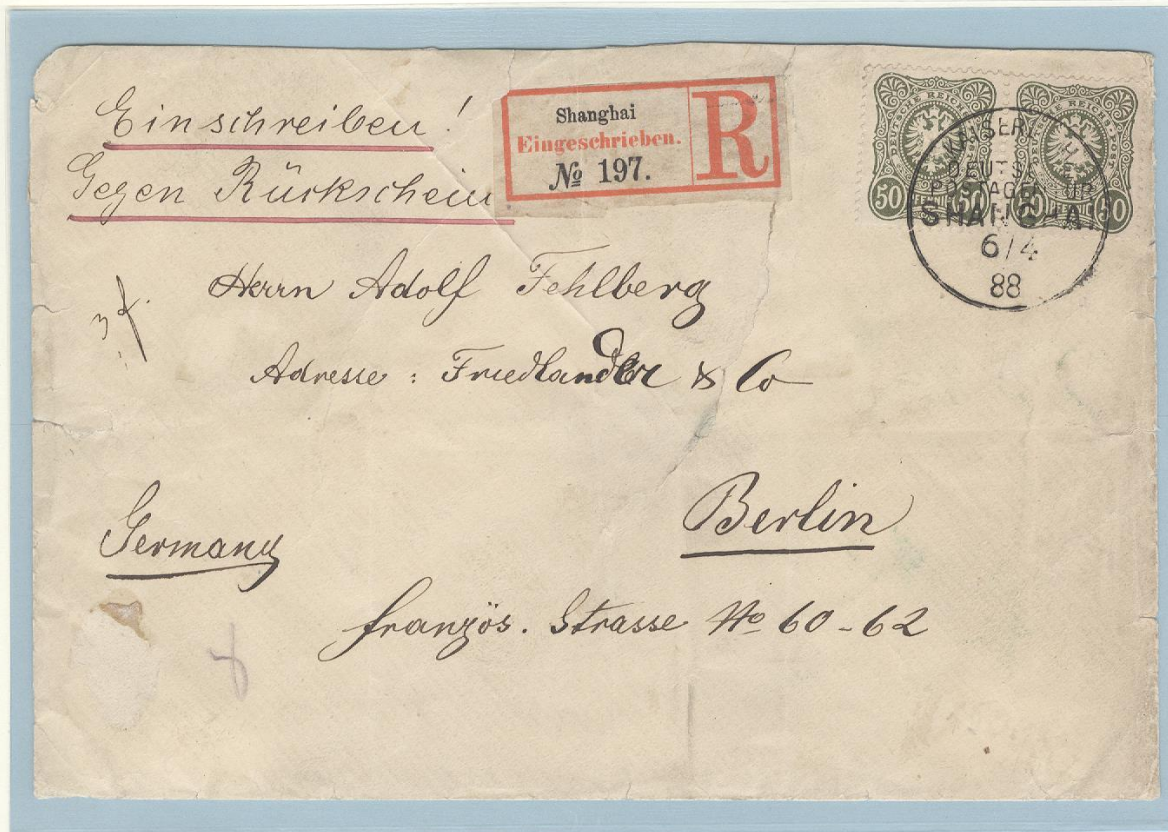 Einschreiben!
Gegen Rückschein
Shanghai
Eingeschrieben.
№ 197.
R
DEUTSCHE REICHS-POST
50 PFENNIG 50
DEUTSCHE REICHS-POST
50 PFENNIG 50
KAISERLICHE
DEUTSCHE
POSTAGENTUR
SHANGHAI
6/4
88
Herrn Adolf Fehlberg
Adresse: Friedlander & Co
Berlin
Germany
Französ. Strasse No 60-62